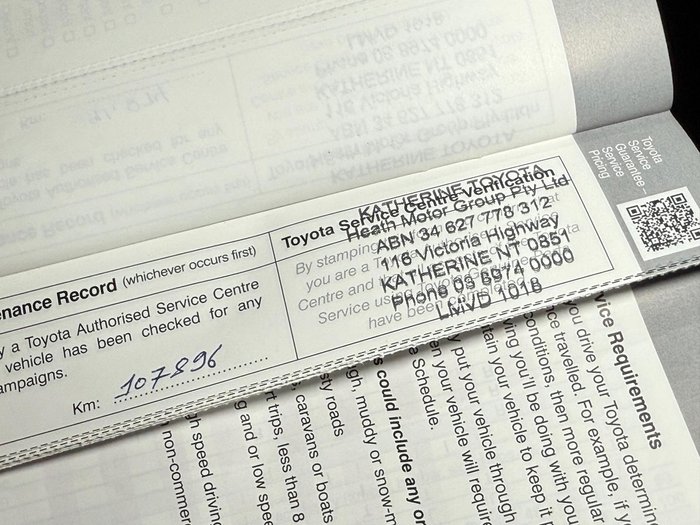 KATHERINE TOYOTA
Heath Motor Group Pty Ltd
ABN 34 627 778 312
116 Victoria Highway
KATHERINE NT 0851
Phone 08 8974 0000
LMVD 1018
Toyota
Service
Guarantee –
Service
Pricing
Toyota Service Centre Verification
By stamping
you are a Toyota
Centre and
Service
have been
enance Record (whichever occurs first)
y a Toyota Authorised Service Centre
vehicle has been checked for any
ampaigns.
Km: 107896
vice Requirements
you drive your Toyota determin
ce travelled. For example, if y
onditions, then more regular
ving you'll be doing with you
tain your vehicle to keep it
y put your vehicle through
en your vehicle will requir
e Schedule.
s could include any or
gh, muddy or snow-m
sty roads
, caravans or boats
rt trips, less than 8
g and or low spee
gh speed drivin
non-commerc